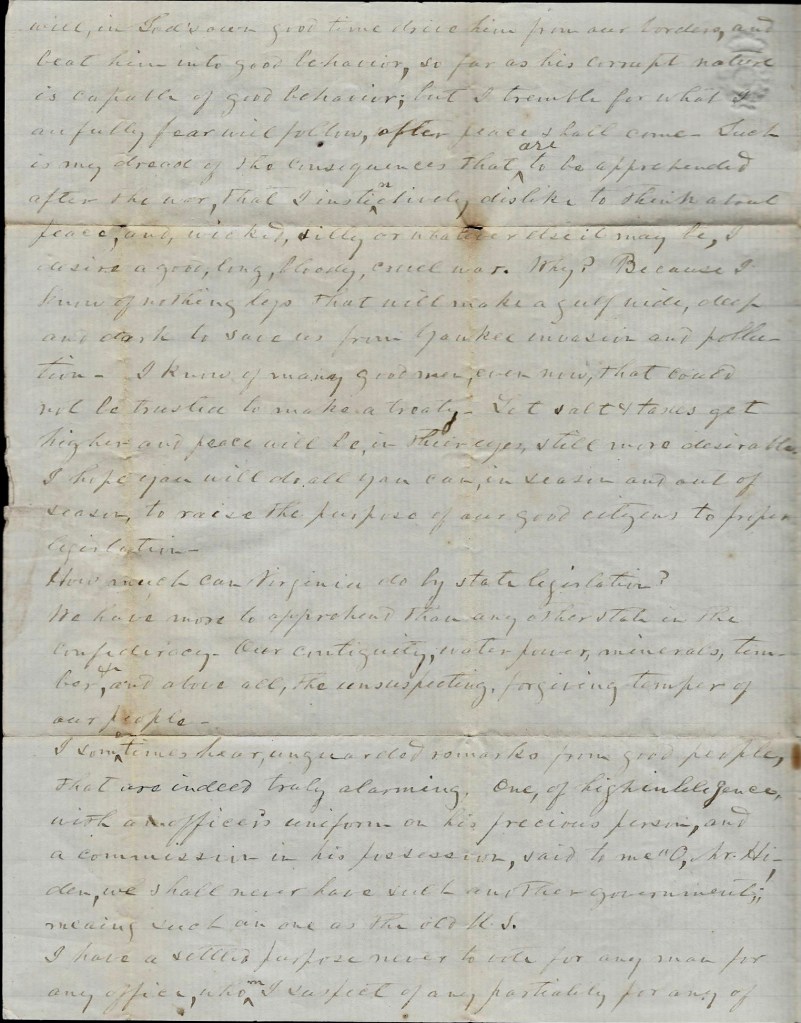 will, in God's own good time drive him from our borders, and
beat him into good behavior, so far as his corrupt nature
is capable of good behavior; but I tremble for what I
awfully fear will follow, after peace shall come - Such
is my dread of the consequences that are to be apprehended
after the war, that I instinctively dislike to think about
peace, and, wicked, silly or whatever else it may be, I
desire a good, long, bloody, cruel war. Why? Because I
know of nothing less that will make a gulf wide, deep
and dark to save us from Yankee invasion and pollu-
tion - I know of many good men, even now, that could
not be trusted to make a treaty - Let salt & taxes get
higher and peace will be, in their eyes, still more desirable
I hope you will do, all you can, in season and out of
season, to raise the purpose of our good citizens to proper
legislation -
How much can Virginia do by state legislation?
We have more to apprehend than any other state in the
confederacy - Our contiguity, water power, minerals, tim-
ber, &c, and above all, the unsuspecting, forgiving temper of
our people -
I sometimes hear, unguarded remarks from good people,
that are indeed truly alarming. One, of high intelegence,
with an officer's uniform on his precious person, and
a commission in his possession, said to me "O, Mr. Hi-
den, we shall never have such another government";
meaing such an one as the old U.S.
I have a settled purpose never to vote for any man for
any office, whom I suspect of any partiality for any of